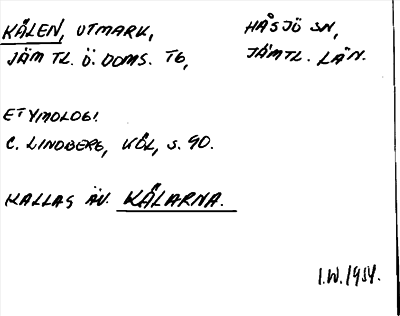 KÅLEN, UTMARK, HÅSJÖ SN,
JÄMTL. Ö. DOMS. TG, JÄMTL. LÄN.
ETYMOLOGI.
C. LINDBERG, KÖL, S. 90.
KALLAS ÄV. KÅLARNA.
I.W. 1954.